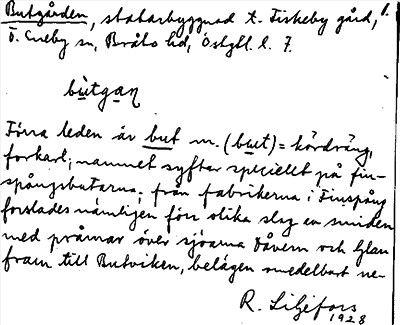 Butgården, statarbyggnad t. Fiskeby gård, 1.
Ö. Eneby sn, Bråbo hd, Östgtl. l. 7.
bu̱tga̱n
Förra leden är but m. (bu̱t) = kördräng,
forkarl; namnet syftar speciellt på Fin-
spångsbutarna; från fabrikerna i Finspång
forslades nämligen förr olika slag av smiden
med pråmar över sjöarna Dåvern och Glan
fram till Butviken, belägen omedelbart ne-
R. Liljefors
1928